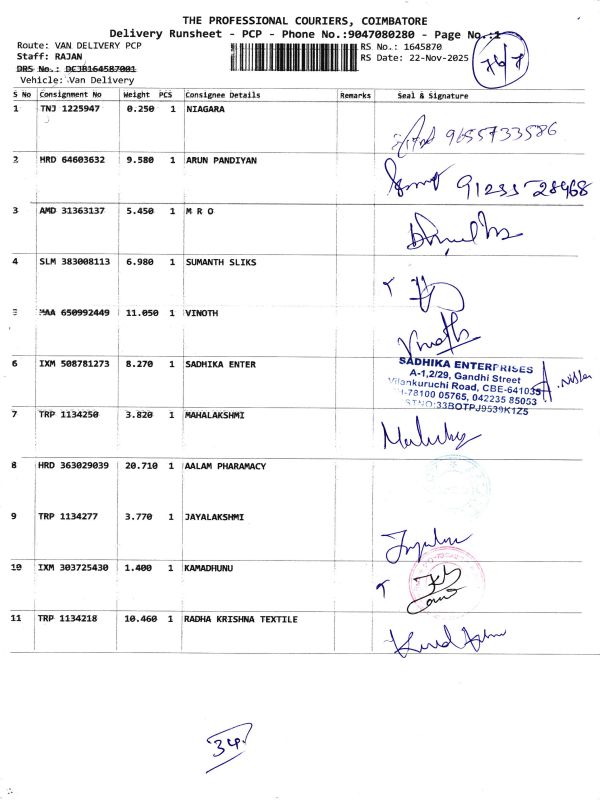 THE PROFESSIONAL COURIERS, COIMBATORE
Delivery Runsheet - PCP - Phone No.:9047080280 - Page No.:1
Route: VAN DELIVERY PCP RS No.: 1645870
Staff: RAJAN RS Date: 22-Nov-2025
DRS No.: DCJB164587001
Vehicle: Van Delivery
76/7
S No Consignment No Weight PCS Consignee Details Remarks Seal & Signature
1 TNJ 1225947 0.250 1 NIAGARA
9655733586
2 HRD 64603632 9.580 1 ARUN PANDIYAN
91233-28468
3 AMD 31363137 5.450 1 M R O
4 SLM 383008113 6.980 1 SUMANTH SLIKS
5 MAA 650992449 11.050 1 VINOTH
Vinoth
6 IXM 508781273 8.270 1 SADHIKA ENTER
SADHIKA ENTERPRISES
A-1,2/29, Gandhi Street
Vilankuruchi Road, CBE-641035
PH-78100 05765, 042235 85053
GSTNO:33BOTPJ9539K1Z5
A. Nisha
7 TRP 1134250 3.820 1 MAHALAKSHMI
8 HRD 363029039 20.710 1 AALAM PHARAMACY
9 TRP 1134277 3.770 1 JAYALAKSHMI
10 IXM 303725430 1.400 1 KAMADHUNU
11 TRP 1134218 10.460 1 RADHA KRISHNA TEXTILE
34